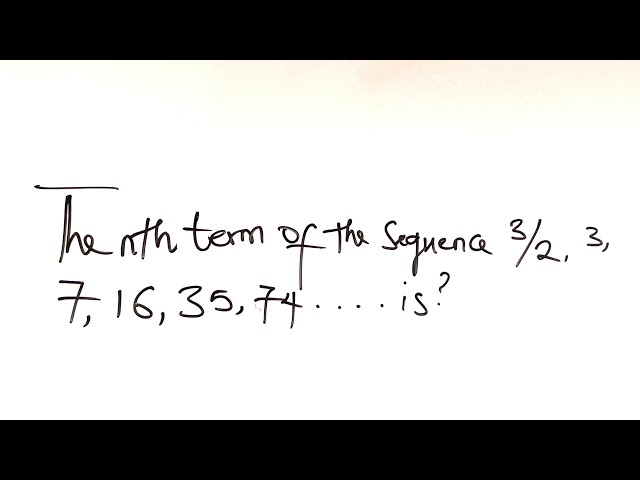 The nth term of the sequence 3/2, 3,
7, 16, 35, 74 .... is?